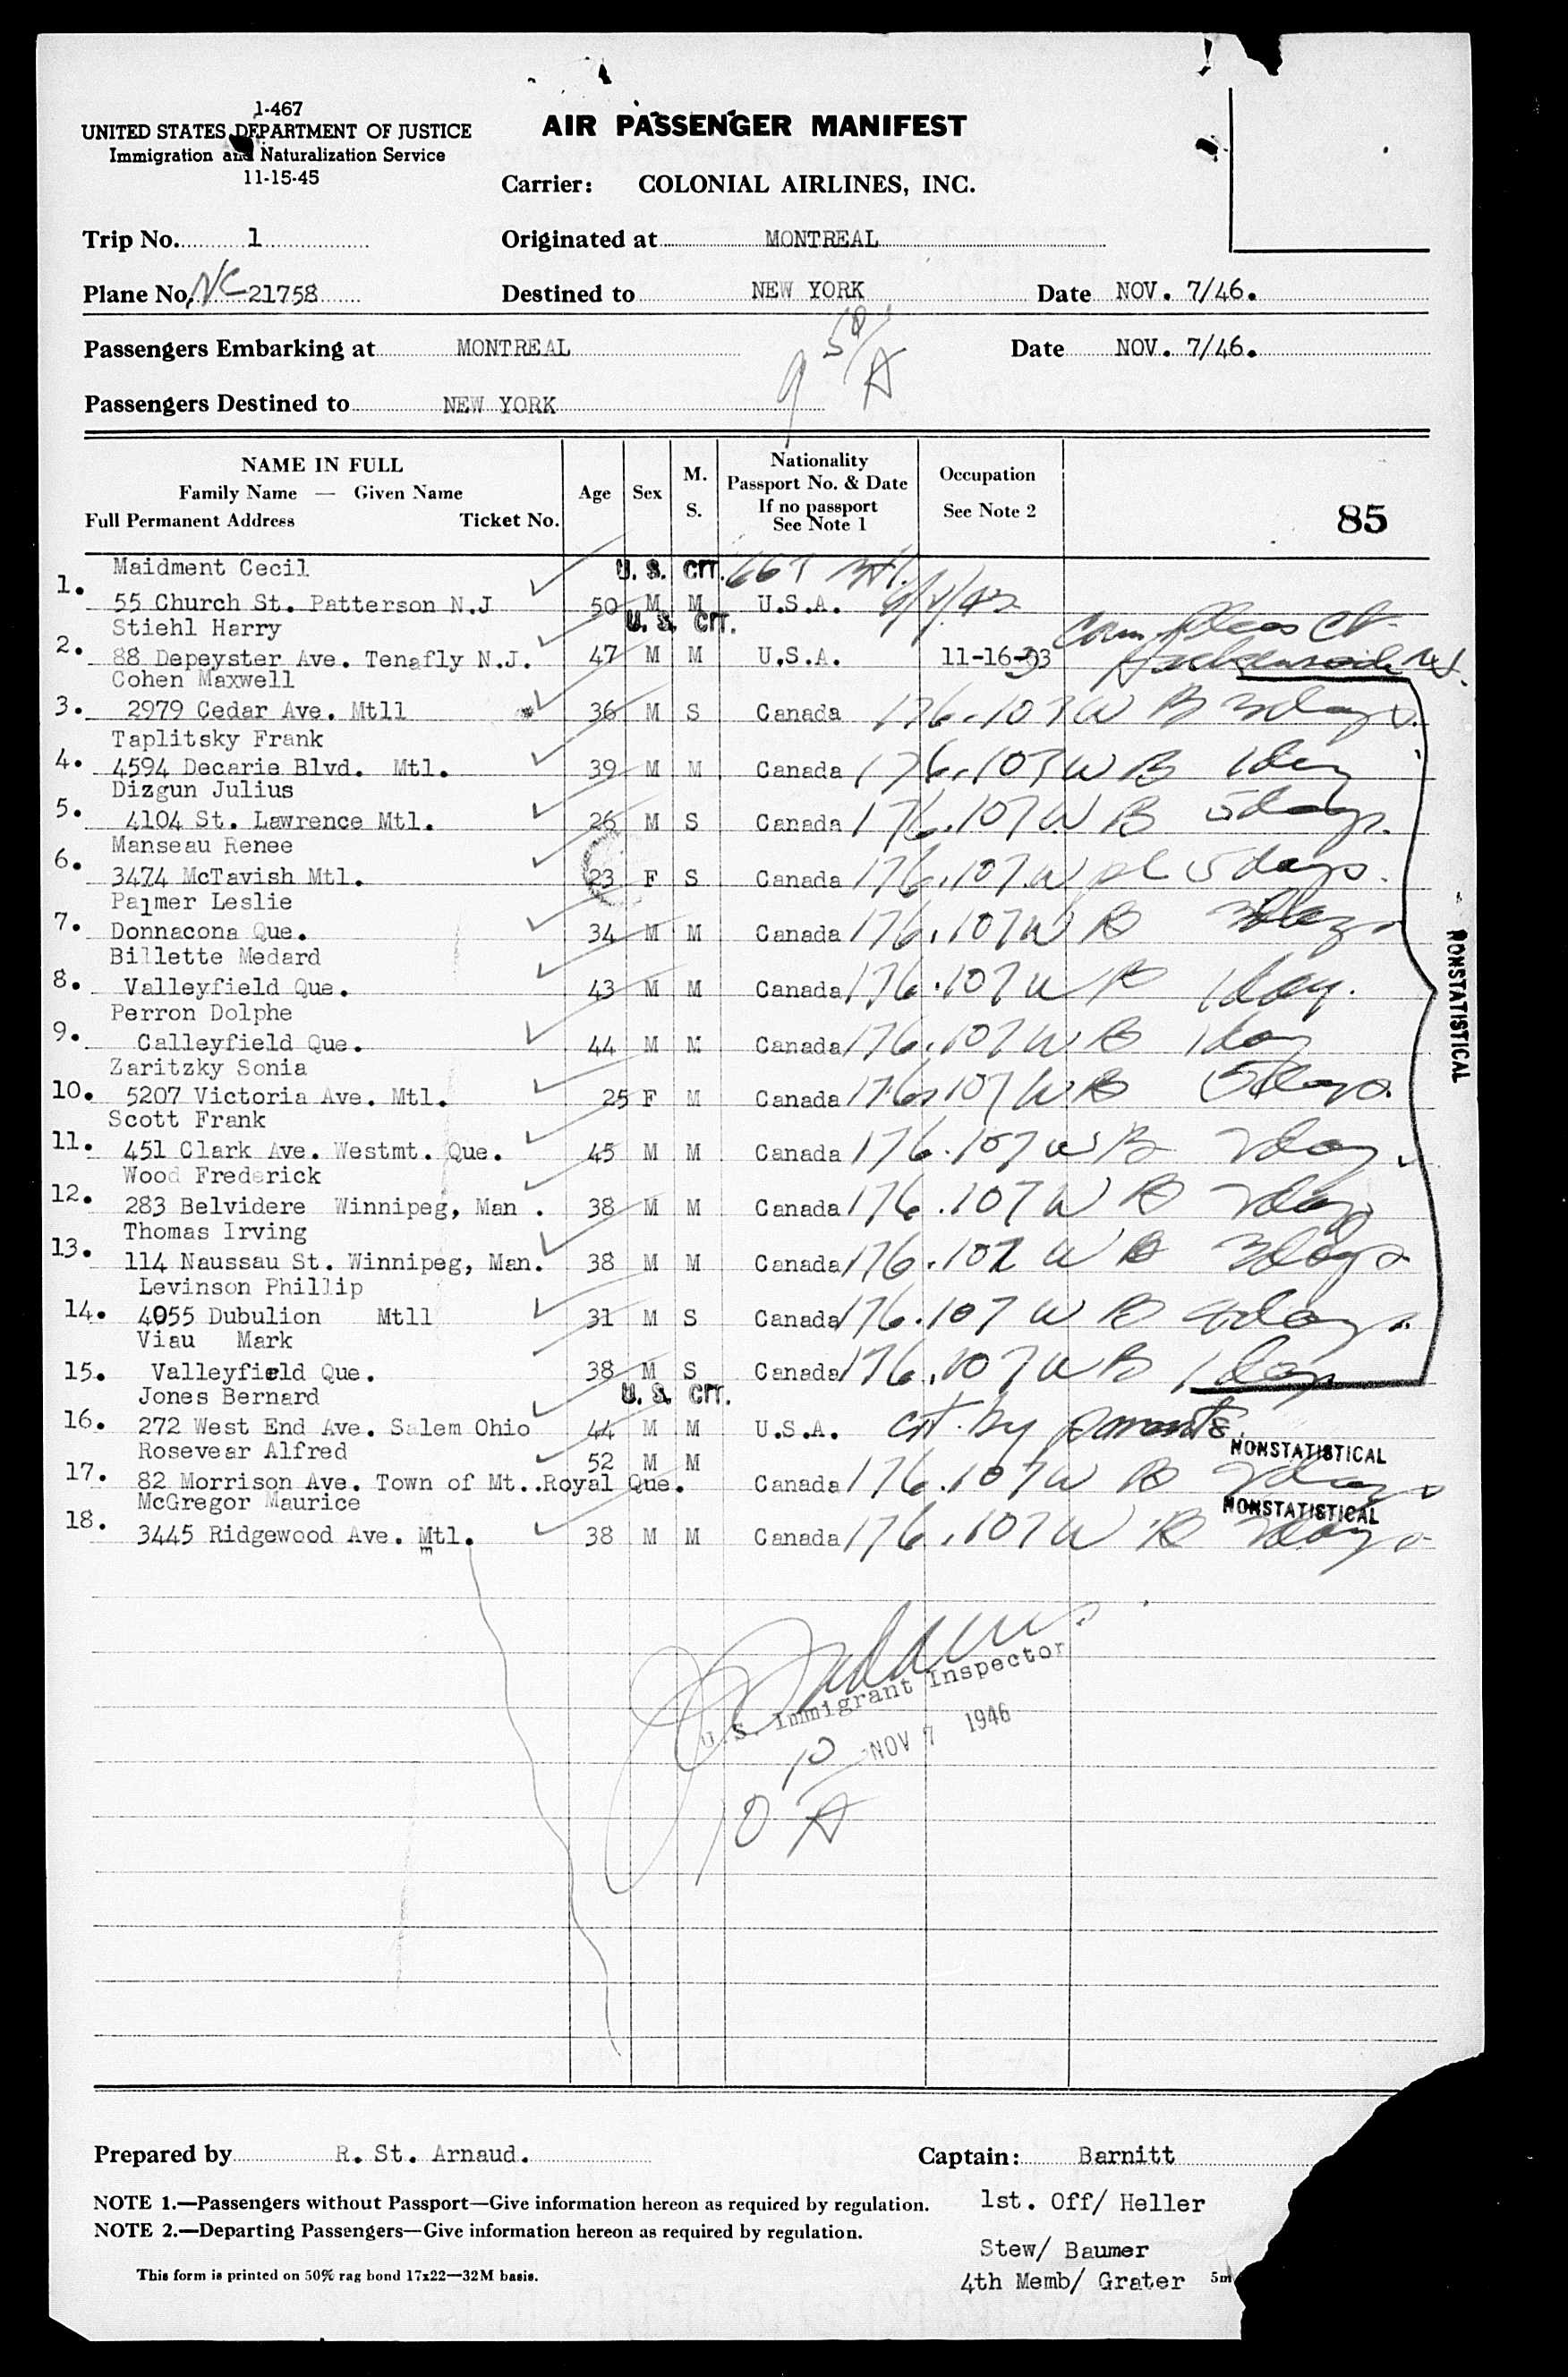 1-467
UNITED STATES DEPARTMENT OF JUSTICE
Immigration and Naturalization Service
11-15-45
AIR PASSENGER MANIFEST
Carrier: COLONIAL AIRLINES, INC.
Trip No. 1 Originated at MONTREAL
Plane No. NC 21758 Destined to NEW YORK Date NOV. 7/46.
Passengers Embarking at MONTREAL Date NOV. 7/46.
9 50/A
Passengers Destined to NEW YORK
NAME IN FULL
Family Name — Given Name
Full Permanent Address Ticket No.
Age Sex M. S.
Nationality
Passport No. & Date
If no passport
See Note 1
Occupation
See Note 2
85
Maidment Cecil U. S. CIT.
1. 55 Church St. Patterson N.J 50 M M U.S.A.
Stiehl Harry U. S. CIT. Com Pleas Ct.
2. 88 Depeyster Ave. Tenafly N.J. 47 M M U.S.A. 11-16-33
Cohen Maxwell
3. 2979 Cedar Ave. Mtll 36 M S Canada 176.107 W B 3 days.
Taplitsky Frank
4. 4594 Decarie Blvd. Mtl. 39 M M Canada 176.107 W B 1 day
Dizgun Julius
5. 4104 St. Lawrence Mtl. 26 M S Canada 176.107 W B 5 days.
Manseau Renee
6. 3474 McTavish Mtl. 23 F S Canada 176.107 W pl 5 days.
Palmer Leslie
7. Donnacona Que. 34 M M Canada 176.107 W B 3 days
Billette Medard
8. Valleyfield Que. 43 M M Canada 176.107 W B 1 day.
Perron Dolphe
9. Calleyfield Que. 44 M M Canada 176.107 W B 1 day
Zaritzky Sonia
10. 5207 Victoria Ave. Mtl. 25 F M Canada 176.107 W B 5 days.
Scott Frank
11. 451 Clark Ave. Westmt. Que. 45 M M Canada 176.107 W B 2 day
Wood Frederick
12. 283 Belvidere Winnipeg, Man . 38 M M Canada 176.107 W B 2 days
Thomas Irving
13. 114 Naussau St. Winnipeg, Man. 38 M M Canada 176.107 W B 3 days
Levinson Phillip
14. 4055 Dubulion Mtll 31 M S Canada 176.107 W B days.
Viau Mark
15. Valleyfield Que. 38 M S Canada 176.107 W B 1 day
NONSTATISTICAL
Jones Bernard U. S. CIT.
16. 272 West End Ave. Salem Ohio 44 M M U.S.A. cit. by parents.
Rosevear Alfred 52 M M NONSTATISTICAL
17. 82 Morrison Ave. Town of Mt..Royal Que. Canada 176.107 W B 2 days
McGregor Maurice NONSTATISTICAL
18. 3445 Ridgewood Ave. Mtl. 38 M M Canada 176.107 W B 2 days
m
U.S. Immigrant Inspector
NOV 7 1946
10 10/A
Prepared by R. St. Arnaud. Captain: Barnitt
NOTE 1.—Passengers without Passport—Give information hereon as required by regulation. 1st. Off/ Heller
NOTE 2.—Departing Passengers—Give information hereon as required by regulation.
Stew/ Baumer
This form is printed on 50% rag bond 17x22—32M basis. 4th Memb/ Grater 5m